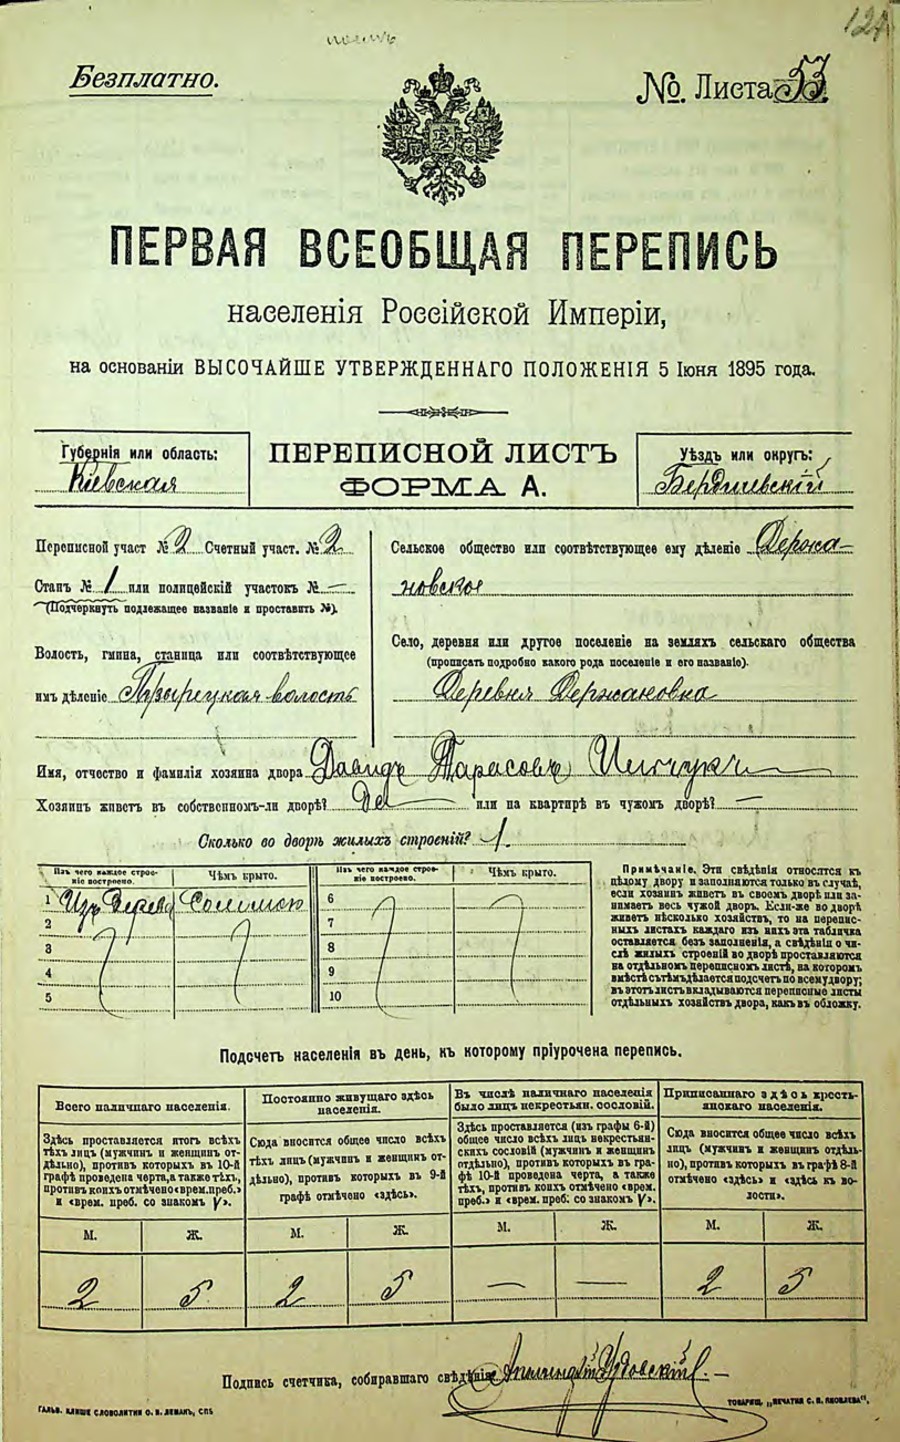 Безплатно.
№. Листа 53.
ПЕРВАЯ ВСЕОБЩАЯ ПЕРЕПИСЬ
населенія Россійской Имперіи,
на основаніи ВЫСОЧАЙШЕ УТВЕРЖДЕННАГО ПОЛОЖЕНІЯ 5 Іюня 1895 года.
Губернія или область:
Кіевская
ПЕРЕПИСНОЙ ЛИСТЪ
ФОРМА А.
Уѣздъ или округъ:
Бердичевскій
Переписной участ № 2 Счетный участ. № 2
Станъ № 1 или полицейскій участокъ № —
(Подчеркнуть подлежащее названіе и проставить №).
Волость, гмина, станица или соотвѣтствующее
имъ дѣленіе волость
Сельское общество или соотвѣтствующее ему дѣленіе Держа-
новское
Село, деревня или другое поселеніе на земляхъ сельскаго общества
(прописать подробно какого рода поселеніе и его названіе).
Деревня Держановка
Имя, отчество и фамилія хозяина двора Давидъ Тарасовъ
Хозяинъ живетъ въ собственномъ-ли дворѣ? Да или на квартирѣ въ чужомъ дворѣ? —
Сколько во дворѣ жилыхъ строеній? 1.
Изъ чего каждое строе-
ніе построено.
Чѣмъ крыто.
Изъ чего каждое строе-
ніе построено.
Чѣмъ крыто.
1 Изъ дерева Соломою
2
3
4
5
6
7
8
9
10
Примѣчаніе. Эти свѣдѣнія относятся къ
цѣлому двору и заполняются только въ случаѣ,
если хозяинъ живетъ въ своемъ дворѣ или за-
нимаетъ весь чужой дворъ. Если-же во дворѣ
живетъ нѣсколько хозяйствъ, то на перепис-
ныхъ листахъ каждаго изъ нихъ эта табличка
оставляется безъ заполненія, а свѣдѣнія о чи-
слѣ жилыхъ строеній во дворѣ проставляются
на отдѣльномъ переписномъ листѣ, на которомъ
вмѣстѣ съ тѣмъ дѣлается подсчетъ по всему двору;
въ этотъ листъ вкладываются переписные листы
отдѣльныхъ хозяйствъ двора, какъ въ обложку.
Подсчетъ населенія въ день, къ которому пріурочена перепись.
Всего наличнаго населенія.
Здѣсь проставляется итогъ всѣхъ
тѣхъ лицъ (мужчинъ и женщинъ от-
дѣльно), противъ которыхъ въ 10-й
графѣ проведена черта, а также тѣхъ,
противъ коихъ отмѣчено «врем. преб.»
и «врем. преб. со знакомъ V».
М. Ж.
2 5
Постоянно живущаго здѣсь
населенія.
Сюда вносится общее число всѣхъ
тѣхъ лицъ (мужчинъ и женщинъ от-
дѣльно), противъ которыхъ въ 9-й
графѣ отмѣчено «здѣсь».
М. Ж.
2 5
Въ числѣ наличнаго населенія
было лицъ некрестьян. сословій.
Здѣсь проставляется (изъ графы 6-й)
общее число всѣхъ лицъ некрестьян-
скихъ сословій (мужчинъ и женщинъ
отдѣльно), противъ которыхъ въ гра-
фѣ 10-й проведена черта, а также
тѣхъ, противъ коихъ отмѣчено «врем.
преб.» и «врем. преб. со знакомъ V».
М. Ж.
— —
Приписаннаго здѣсь кресть-
янскаго населенія.
Сюда вносится общее число всѣхъ
лицъ (мужчинъ и женщинъ отдѣль-
но), противъ которыхъ въ графѣ 8-й
отмѣчено «здѣсь» и «здѣсь къ во-
лости».
М. Ж.
2 5
Подпись счетчика, собиравшаго свѣдѣнія
ГАЛЬВ. КЛИШЕ СЛОВОЛИТНИ О. И. ЛЕМАНЪ, СПБ
ТОВАРИЩ. „ПЕЧАТНЯ С. П. ЯКОВЛЕВА“,